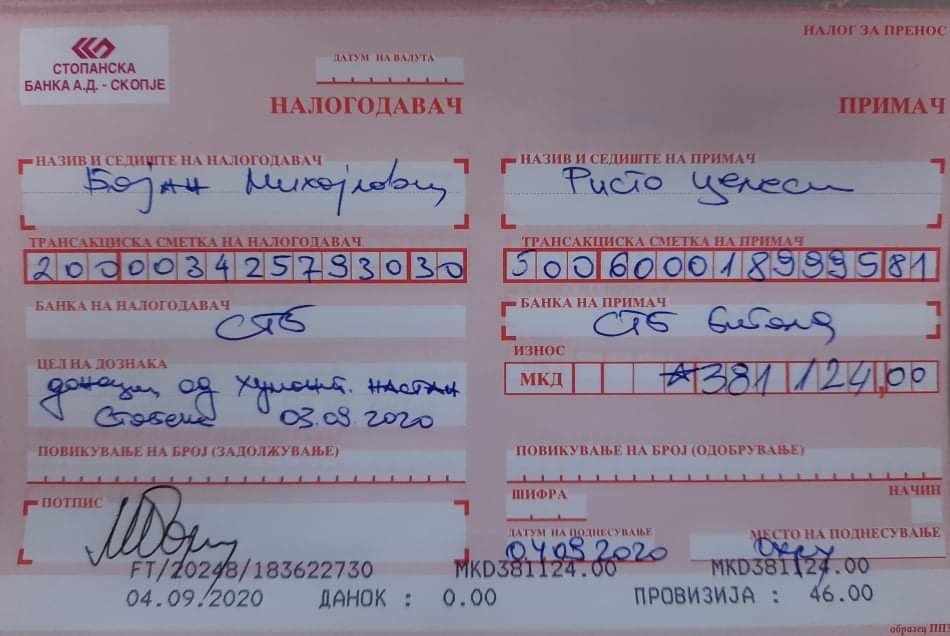 НАЛОГ ЗА ПРЕНОС
СТОПАНСКА
БАНКА А.Д. - СКОПЈЕ
ДАТУМ НА ВАЛУТА
НАЛОГОДАВАЧ
ПРИМАЧ
НАЗИВ И СЕДИШТЕ НА НАЛОГОДАВАЧ
Бојан Михајловиќ
НАЗИВ И СЕДИШТЕ НА ПРИМАЧ
Ристо Целески
ТРАНСАКЦИСКА СМЕТКА НА НАЛОГОДАВАЧ
200000342579303 0
ТРАНСАКЦИСКА СМЕТКА НА ПРИМАЧ
500600018999581
БАНКА НА НАЛОГОДАВАЧ
СТБ
БАНКА НА ПРИМАЧ
СТБ Битола
ЦЕЛ НА ДОЗНАКА
од настан
03.09.2020
ИЗНОС
МКД 381 124,00
ПОВИКУВАЊЕ НА БРОЈ (ЗАДОЛЖУВАЊЕ)
ПОВИКУВАЊЕ НА БРОЈ (ОДОБРУВАЊЕ)
ПОТПИС
ШИФРА
НАЧИН
ДАТУМ НА ПОДНЕСУВАЊЕ
04.09.2020
МЕСТО НА ПОДНЕСУВАЊЕ
FT/20248/183622730 MKD381124.00 MKD381124.00
04.09.2020 ДАНОК : 0.00 ПРОВИЗИЈА : 46.00
образец ПП